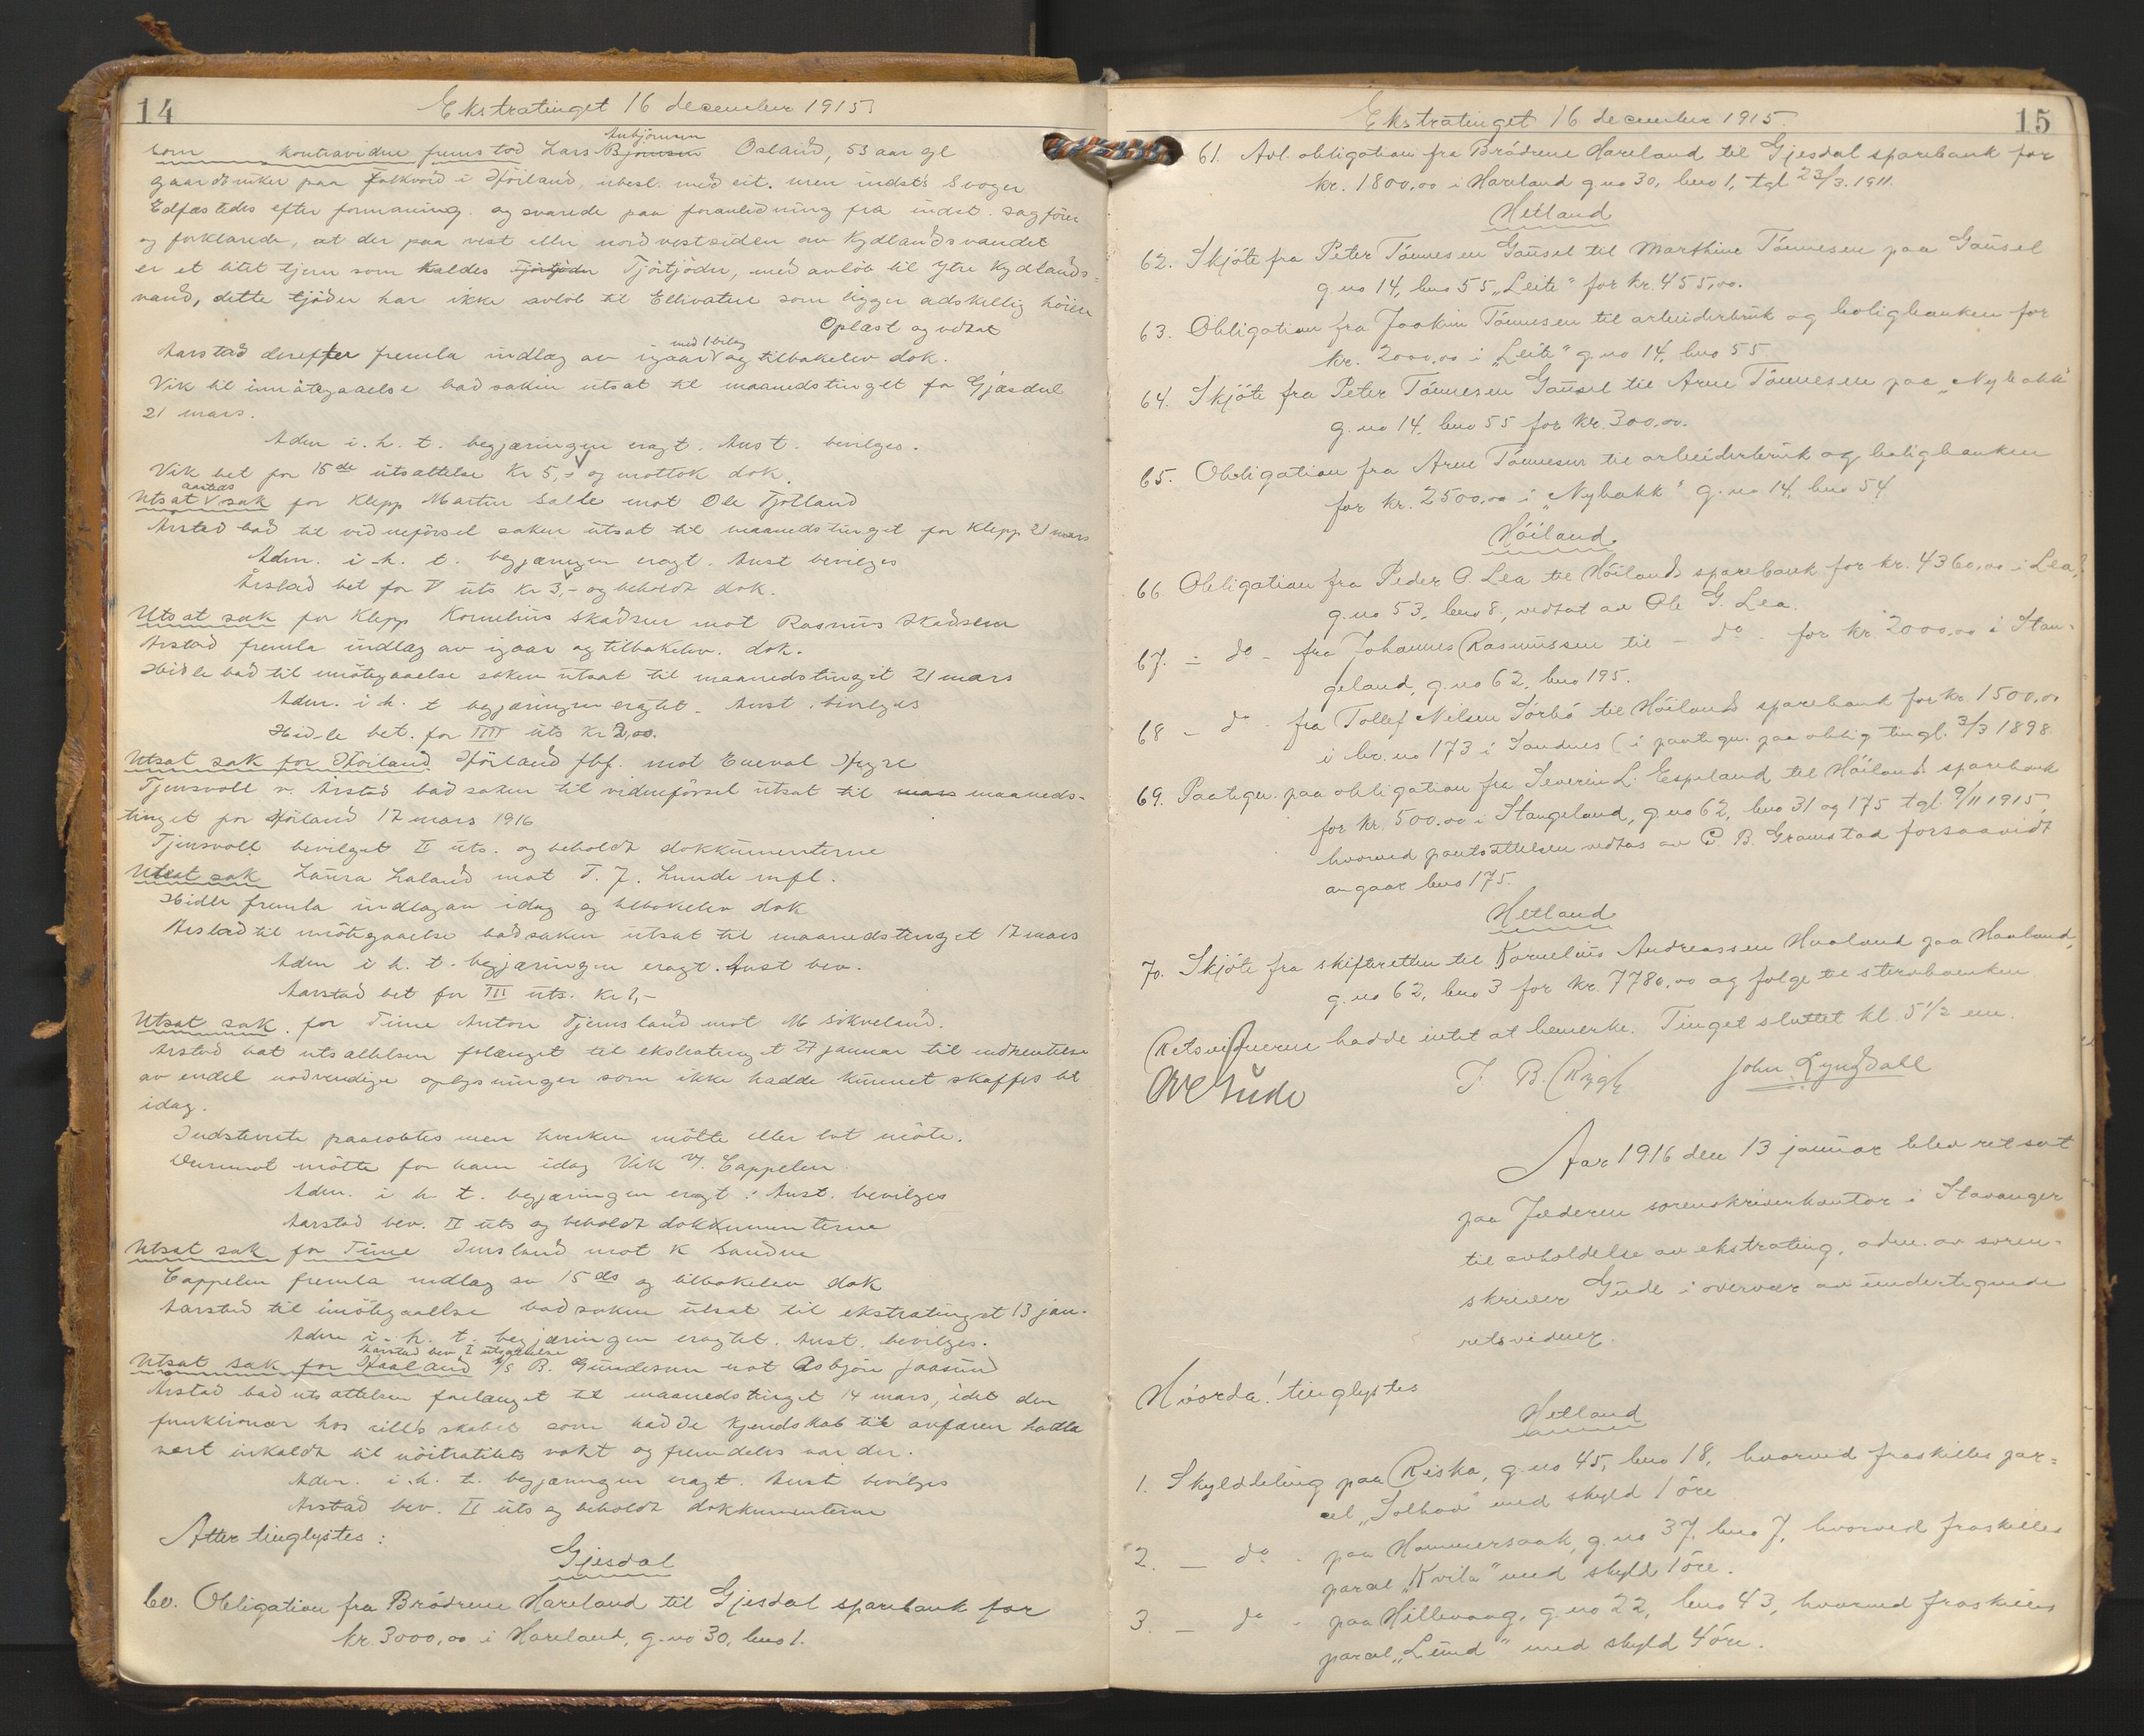 14
Ekstratinget 16 december 1915
Anbjørnsen
som kontravidne fremstod Lars Bjørnsen Osland, 53 aar gl
gaardbruker paa Folkvord i Høiland ubesl. med cit. men indst's svoger
Edfæstedes efter formaning. og svarede paa foranledning fra indst. sagfører
og forklarede, at der paa vest eller nordvestsiden av Kydlandsvandet
er et litet tjern som kaldes Tjörtjödn Tjörtjödn, med avløb til ytre Kydlands-
vand, dette tjödn har ikke avløb til Ellivatne som ligger adskillig høiere
Oplæst og vedtat
med 1 bilag
Aarstad derefter fremla indlæg av igaar og tilbakelev dok.
Vik til imøtegaaelse bad saken utsat til maanedstinget for Gjæsdal
21 mars.
Adm i. h. t. begjæringen eragt. Anst. bevilges.
Vik bet for 15de utsættelse kr 5,- og mottok dok.
aasteds
Utsat sak for Klepp Martin Salte mot Ole Tjøtland
Årstad bad til vidneførsel saken utsat til maanedstinget for Klepp 21 mars
Adm. i. h. t. begjæringen eragt. Anst bevilges
Årstad bet for V uts kr 3,- og beholdt dok.
Utsat sak for Klepp Kornelius Skadsem mot Rasmus Skadsem
Årstad fremla indlæg av igaar og tilbakelev. dok.
Hidle bad til imøtegaaelse saken utsat til maanedstinget 21 mars
Adm. i. h. t begjæringen eragtet. Anst. bevilges
Hidle bet. for IIII uts kr 2,00.
Utsat sak for Høiland Høiland fbf. mot Eneval Høyre
Tjensvoll v. Årstad bad saken til vidneførsel utsat til mars maaneds-
tinget for Høiland 17 mars 1916
Tjensvoll bevilget II uts. og beholdt dokkumenterne
Utsat sak Laura Laland mot T. J. Lunde mfl.
Hidle fremla indlæg av idag og tilbakelev dok
Årstad til imøtegaaelse bad saken utsat til maanedstinget 17 mars
Adm i h. t. begjæringen eragt. Anst bev.
Aarstad bet for III uts. kr 2,-
Utsat sak. for Time Anton Tjemsland mot M Sikveland.
Årstad bad utsættelsen forlænget til ekstratinget 27 januar til indhentelse
av endel nødvendige oplysninger som ikke hadde kunnet skaffes til
idag.
Indstevnte paaroptes men hverken møtte eller lot møte.
Derimot møtte for ham idag Vik v/. Cappelen
Adm. i h t. begjæringen eragt. Anst. bevilges
Aarstad bev. II uts og beholdt dokkumenterne
Utsat sak for Time Imsland mot K Sandne
Cappelen fremla indlæg av 15 ds og tilbakelev dok
Aarstad til imøtegaaelse bad saken utsat til ekstratinget 13 jan.
Adm i. h. t. begjæringen eragtet. Anst. bevilges.
Aarstad bev. I utsættelse
Utsat sak for Haaland A/S B. Gundersen mot Asbjørn Jaasund
Årstad bad utsættelsen forlænget til maanedstinget 14 mars, idet den
funktionær hos selskabet som hadde kjendskab til avfæren hadde
vært inkaldt til nøitralitets vakt og fremdeles var der.
Adm. i. h. t. begjæringen eragt. Anst bevilges
Årstad bev. II uts og beholdt dokkumenterne
Atter tinglystes:
Gjesdal
60. Obligation fra Brødrene Hareland til Gjesdal sparebank for
kr. 3000,00 i Hareland, g. no 30, bno 1.
15
Ekstratinget 16 december 1915.
61. Avl. obligation fra Brødrene Hareland til Gjesdal sparebank for
kr. 1800,00 i Hareland g no 30, bno 1, tgl 23/3. 1911.
Hetland
62. Skjøte fra Peter Tønnesen Gausel til Marthine Tønnesen paa Gausel
g no 14, bno 55 „Leite" for kr. 455,00.
63. Obligation fra Joakim Tønnesen til arbeiderbruk og boligbanken for
kr. 2000,00 i „Leite" g. no 14, bno 55
64. Skjøte fra Peter Tønnesen Gausel til Arne Tønnesen paa „Nybakk"
g. no 14, bno 55 for kr. 300,00.
65. Obligation fra Arne Tønnesen til arbeiderbruk og boligbanken
for kr. 2500,00 i „Nybakk" g. no 14, bno 54
Høiland
66. Obligation fra Peder O. Lea til Høilands sparebank for kr. 4360,00 i Lea,
g. no 53, bno 8, vedtat av Ole G. Lea.
67. - do - fra Johannes Rasmussen til - do - for kr. 2000,00 i Stan-
geland, g. no 62, bno 195.
68 - do - fra Tollef Nilsen Sørbø til Høilands sparebank for kr. 1500,00
i br. no 173 i Sandnes (i pantegn. paa oblig tingl. 3/3 1898.
69. Paategn. paa obligation fra Severin L. Espeland til Høilands sparebank
for kr. 500,00 i Stangeland, g. no 62, bno 31 og 175 tgl 9/11 1915,
hvorved pantsættelsen vedtas av P. B. Gramstad forsaavidt
angaar bno 175.
Hetland
70. Skjøte fra skifteretten til Kornelius Andreassen Haaland paa Haaland,
g. no 62, bno 3 for kr. 7780,00 og følge til sterbboenken
Retsvidnerne hadde intet at bemerke. Tinget sluttet kl. 5 1/2 em.
Ove Gude
T. B. Rygh
John Lyngdall
Aar 1916 den 13 januar blev ret sat
paa Jæderen sorenskriverkontor i Stavanger
til avholdelse av ekstrating, adm. av soren-
skriver Gude i overvær av undertegnede
retsvidner.
Hvorda! tinglystes
Hetland
1. Skylddeling paa Riska, g. no 45, bno 18, hvorved fraskilles par-
cel „Solhov" med skyld 1 øre
2. - do - paa Hommersaak, g. no 37, bno 7, hvorved fraskilles
parcel „Kvila" med skyld 1 øre.
3. - do - paa Hillevaag, g. no 22, bno 43, hvorved fraskilles
parcel „Lund" med skyld 4 øre.